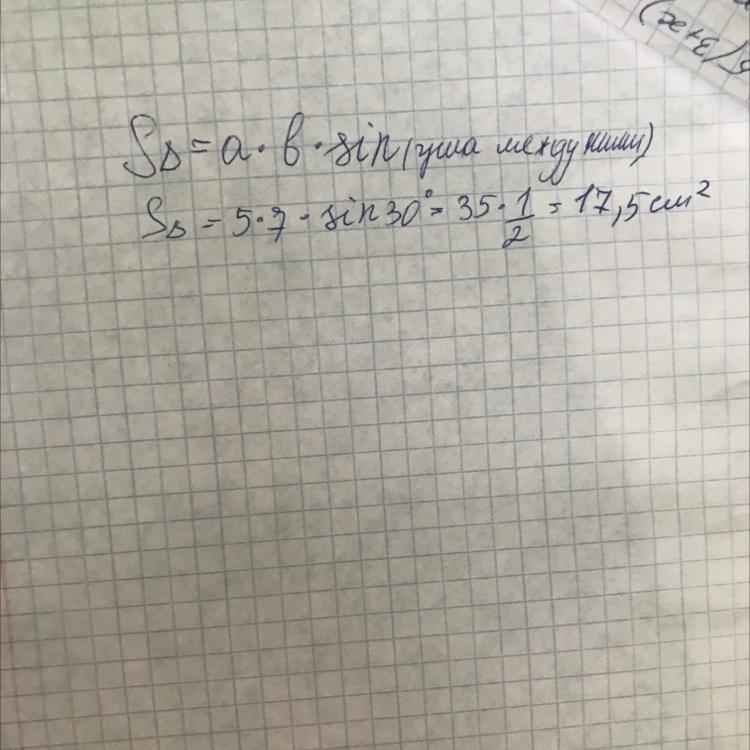 S△ = a · b · sin (угла между ними)
S△ = 5 · 7 · sin 30° = 35 · 1/2 = 17,5 см²